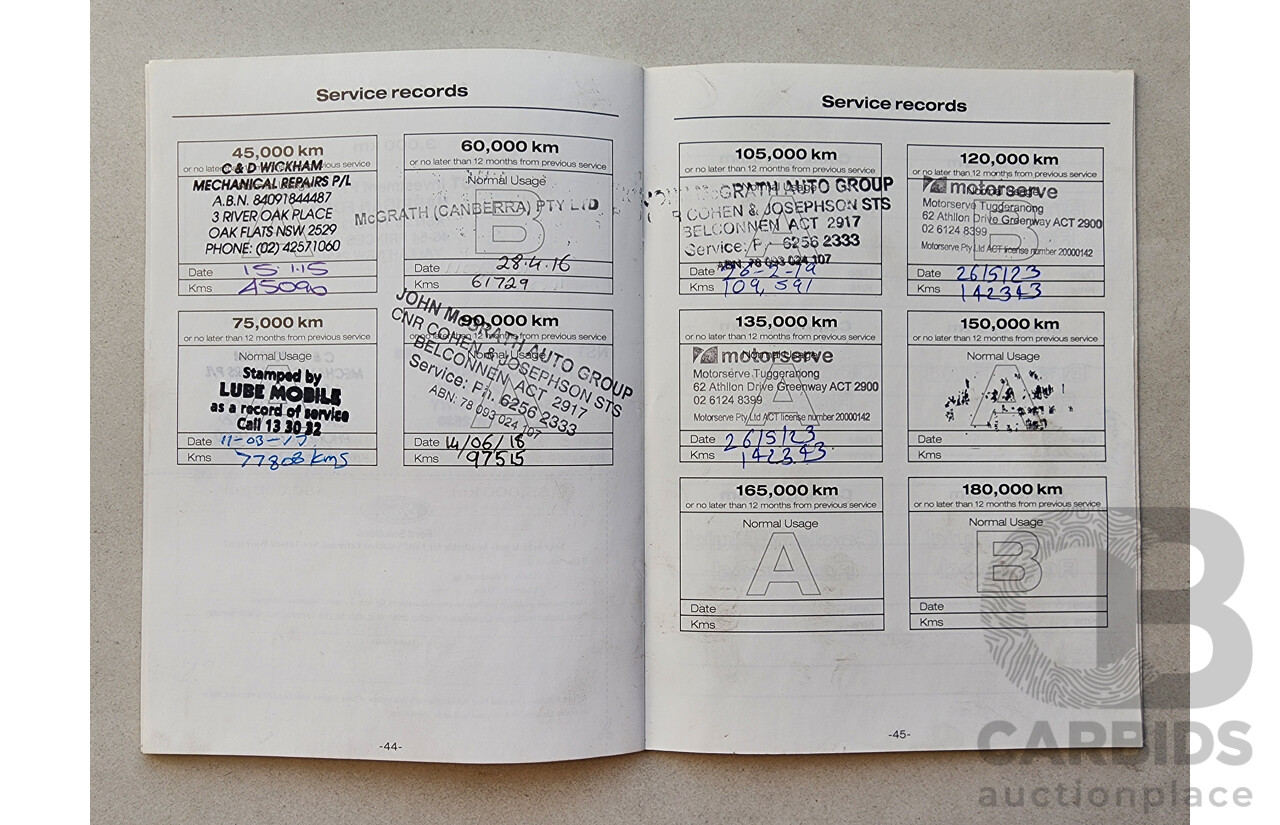 Service records
45,000 km
or no later
ous service
C & D WICKHAM
MECHANICAL REPAIRS P/L
A.B.N. 84091844487
3 RIVER OAK PLACE
OAK FLATS NSW 2529
PHONE: (02) 42571060
Date 15 1·15
Kms 45090
60,000 km
or no later than 12 months from previous service
Normal Usage
McGRATH (CANBERRA) PTY LTD
B
Date 28·4·16
Kms 61729
75,000 km
or no later than 12 months from previous service
Normal Usage
Stamped by
LUBE MOBILE
as a record of service
Call 13 30 32
Date 11-03-17
Kms 77808 kms
90,000 km
Normal Usage
JOHN McGRATH AUTO GROUP
CNR COHEN & JOSEPHSON STS
BELCONNEN ACT 2917
Service: Ph. 6256 2333
ABN: 78 093 024 107
Date 14/06/18
Kms 97515
-44-
Service records
105,000 km
or no later than 12 months from previous service
McGRATH AUTO GROUP
R COHEN & JOSEPHSON STS
BELCONNEN ACT 2917
Service: P 6256 2333
ABN: 78 093 024 107
Date 26-2-19
Kms 109,591
120,000 km
or no later than 12 months from previous service
motorserve
Motorserve Tuggeranong
62 Athllon Drive Greenway ACT 2900
02 6124 8399
B
Motorserve Pty Ltd ACT license number 20000142
Date 26/5/23
Kms 142343
135,000 km
or no later than 12 months from previous service
motorserve
Motorserve Tuggeranong
62 Athllon Drive Greenway ACT 2900
02 6124 8399
A
Motorserve Pty Ltd ACT license number 20000142
Date 26/5/23
Kms 142343
150,000 km
or no later than 12 months from previous service
Normal Usage
A
Date
Kms
165,000 km
or no later than 12 months from previous service
Normal Usage
A
Date
Kms
180,000 km
or no later than 12 months from previous service
Normal Usage
B
Date
Kms
-45-
CARBIDS
auctionplace